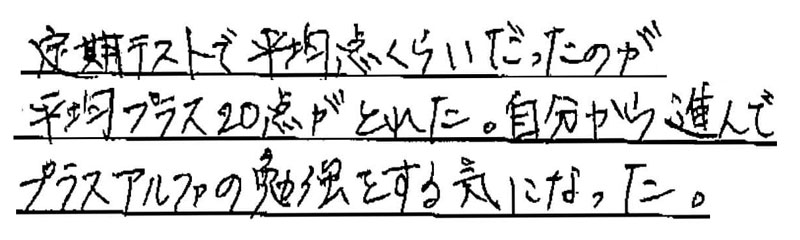 定期テストで平均点くらいだったのが
平均プラス20点がとれた。自分から進んで
プラスアルファの勉強をする気になった。